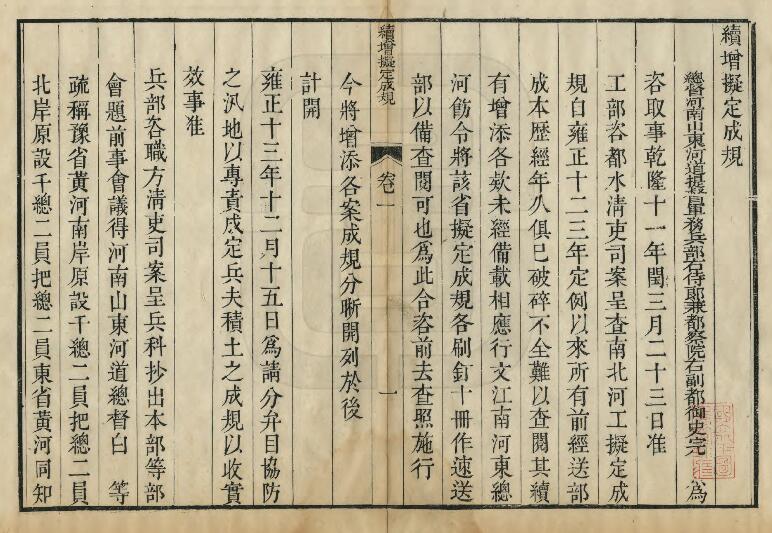 續增擬定成規
總督河南山東河道提督軍務兵部右侍郎兼都察院右副都御史完 爲
咨取事乾隆十一年閏三月二十三日准
工部咨都水清吏司案呈查南北河工擬定成
規自雍正十二三年定例以來所有前經送部
成本歷經年久俱已破碎不全難以查閱其續
有增添各欵未經備載相應行文江南河東總
河飭令將該省擬定成規各刷釘十冊作速送
部以備查閱可也爲此合咨前去查照施行
今將增添各案成規分晰開列於後
續增擬定成規 卷一 一
計開
雍正十三年十二月十五日爲請分弁目協防
之汛地以專責成定兵夫積土之成規以收實
效事准
兵部咨職方清吏司案呈兵科抄出本部等部
會題前事會議得河南山東河道總督白 等
疏稱豫省黃河南岸原設千總二員把總二員
北岸原設千總二員把總二員東省黃河同知